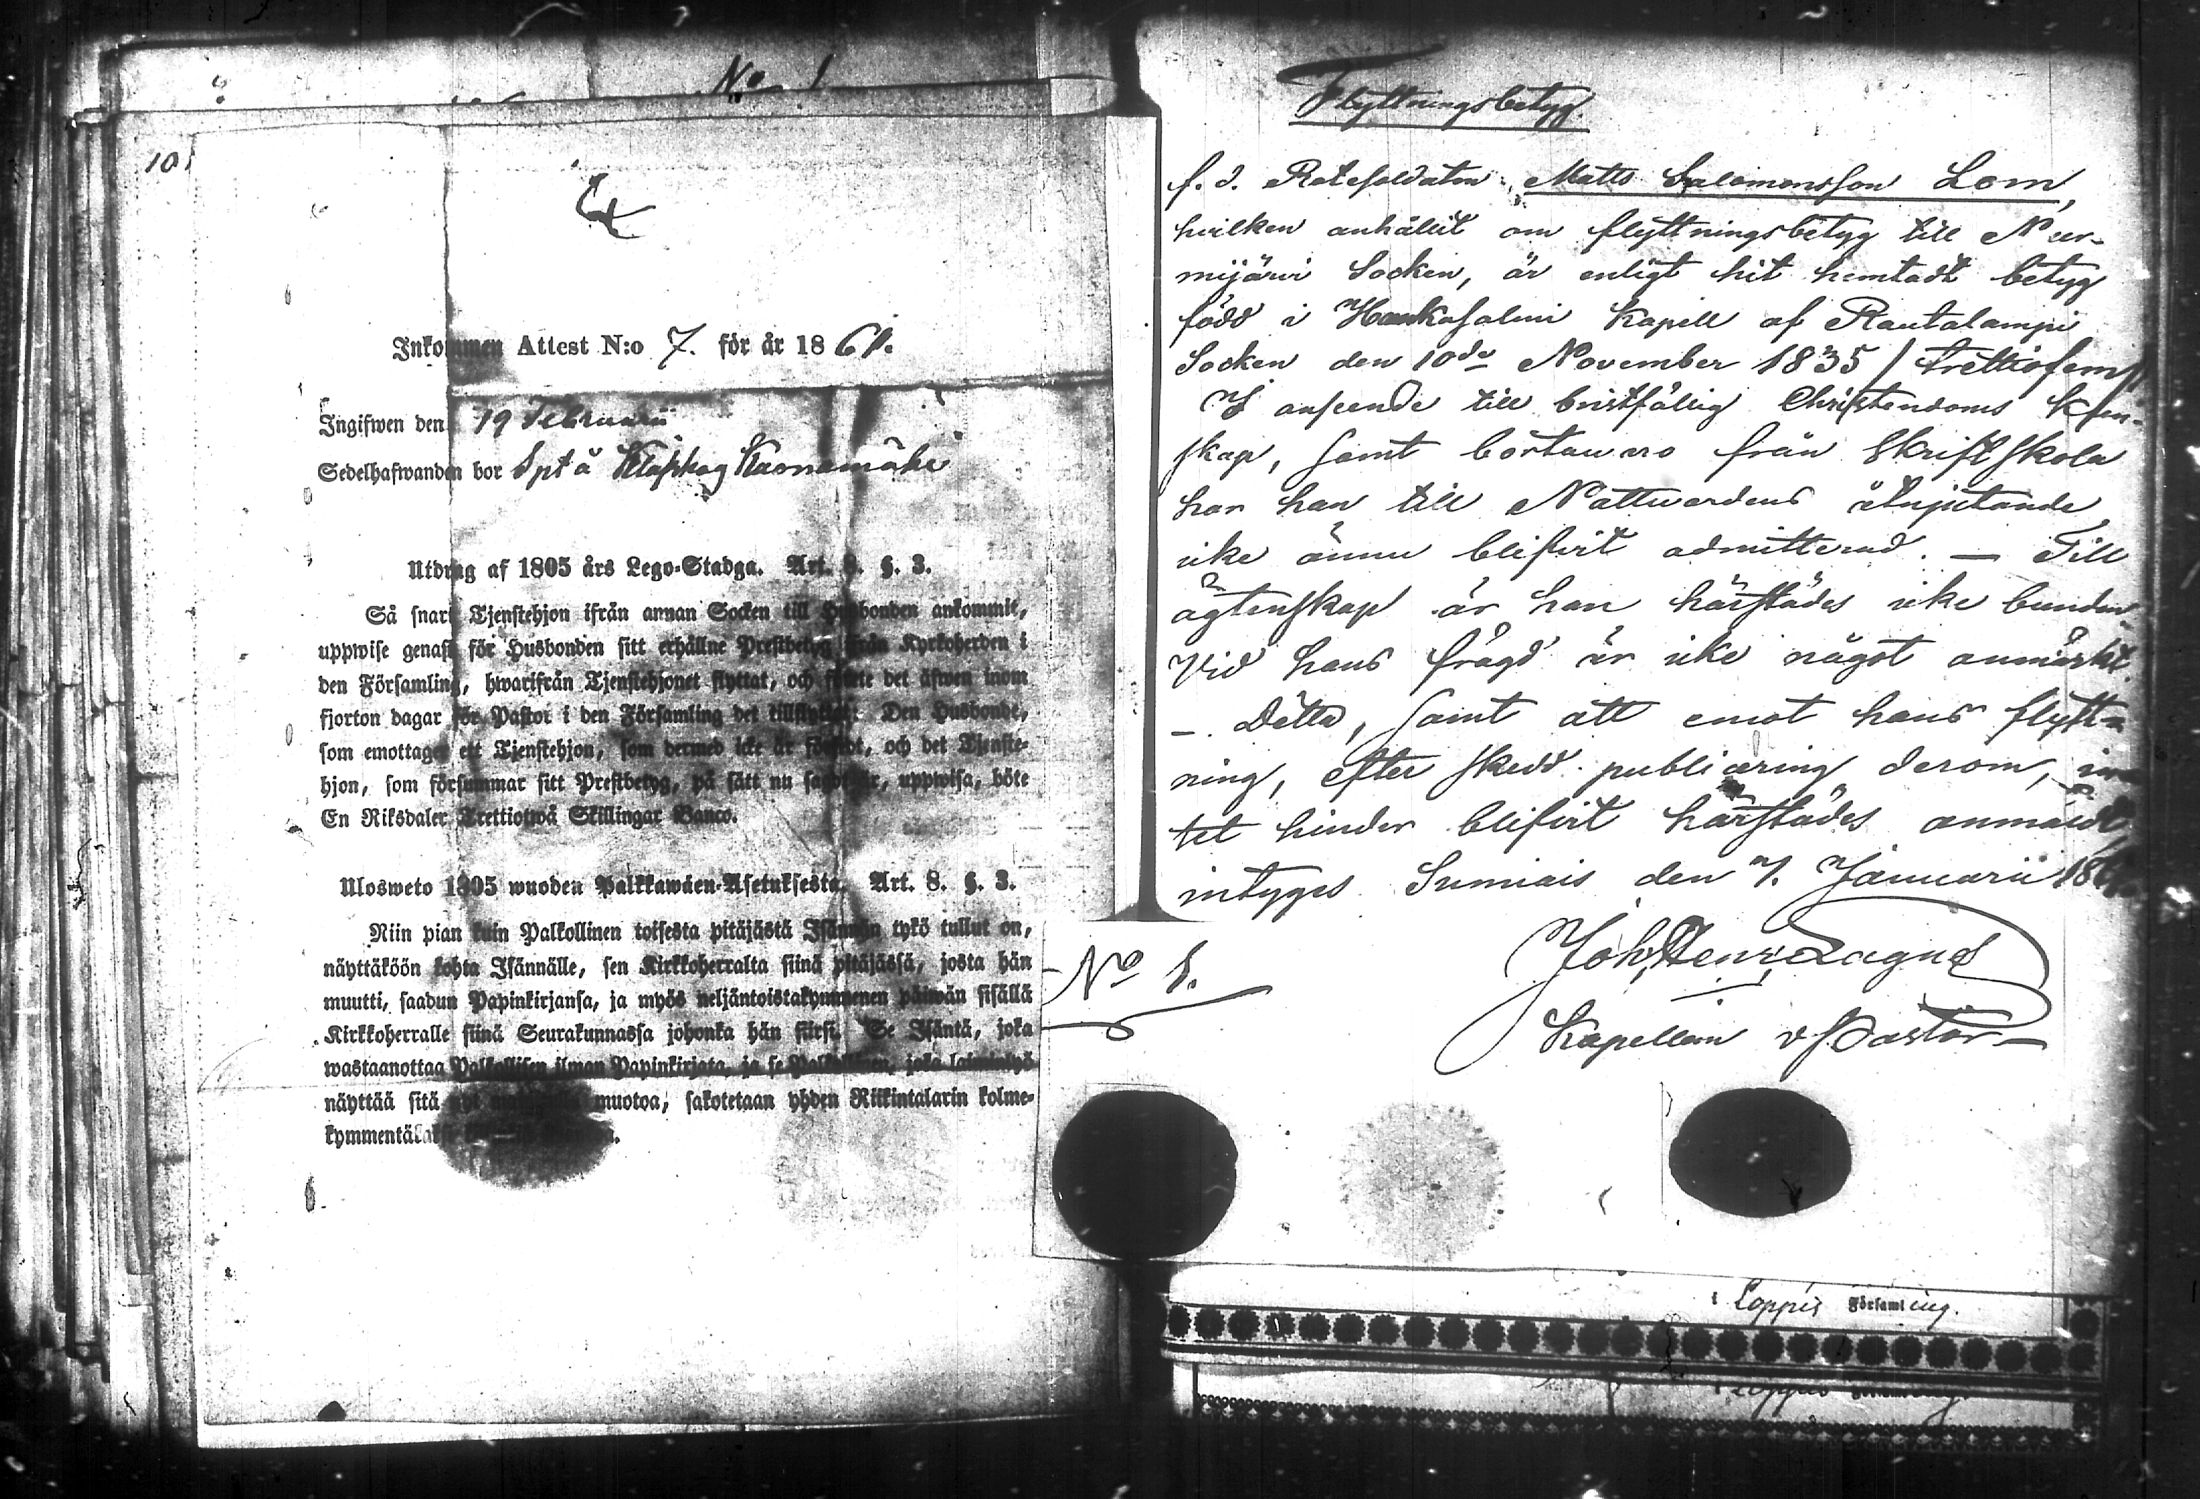 No 1
101
Inkommen Attest N:o 7. för år 1861.
Ingifwen den 19 Februarii
Sedelhafwanden bor Spt å Klapskog Kuonamäki
Utdrag af 1805 års Lego-Stadga. Art. 8. §. 3.
Så snart Tjenstehjon ifrån annan Socken till Husbonden ankommit,
uppwise genast för Husbonden sitt erhållne Prestbetyg från Kyrkoherden i
den Församling, hwarifrån Tjenstehjonet flyttat, och förete det äfwen inom
fjorton dagar för Pastor i den Församling det tillflyttat. Den Husbonde,
som emottager ett Tjenstehjon, som dermed icke är försedt, och det Tjenste-
hjon, som försummar sitt Prestbetyg, på sätt nu sagdt är, uppwisa, böte
En Riksdaler Trettiotwå Skillingar Banco.
Ulosweto 1805 wuoden Palkkawäen-Asetuksesta. Art. 8. §. 3.
Niin pian kuin Palkollinen toisesta pitäjästä Isännän tykö tullut on,
näyttäköön kohta Isännälle, sen Kirkkoherralta siinä pitäjässä, josta hän
muutti, saadun Papinkirjansa, ja myös neljäntoistakymmenen päiwän sisällä
Kirkkoherralle siinä Seurakunnassa johonka hän siirsi. Se Isäntä, joka
wastaanottaa Palkollisen ilman Papinkirjata, ja se Palkollinen, joka laiminlyö
näyttää sitä muotoa, sakotetaan yhden Riikintalarin kolme-
Flyttningsbetyg.
f. d. Rotesoldaten Matts Salomonsson Lom,
hvilken anhållit om flyttningsbetyg till Nur-
mijärvi Socken, är enligt hit hemtadt betyg
född i Hankasalmi Kapell af Rautalampi
Socken den 10de November 1835 / trettiofem/.
I anseende till bristfällig Christendoms Kun-
skap, samt bortavaro från Skriftskola
har han till Nattwardens åtnjutande
icke ännu blifvit admitterad. — Till
ägtenskap är han härstädes icke bunden
Vid hans frägd är icke något anmärkt.
–. Detta, samt att emot hans flytt-
ning, efter skedd publicering derom, in-
tet hinder blifvit härstädes anmäldt,
intyges. Sumiais den 7. Januarii 186
Joh, Henr, Lagus
Kapellan v Pastor
No 1.
i Loppis Församling.